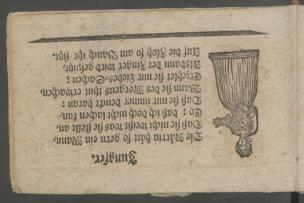 Jungfer.
Die Närrin hätt so gern ein Mann,
Daß sie nicht weiß was sie stell an,
Ey! daß ich doch nicht lachen kan,
Daß sie nur immer denckt daran:
Wann sie des Morgens thut erwachen,
Erzehlet sie nur Liebes-Sachen;
Alsdann der Finger wird gespitzt,
Auf die Floh so am Bauch ihr sitzt.